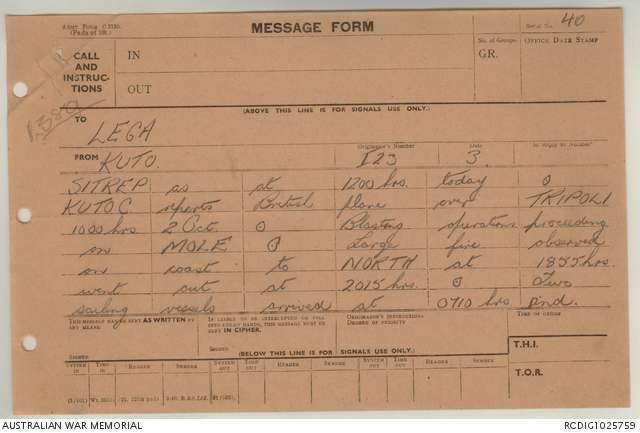 Army Form C 2136.
(Pads of 100.)
MESSAGE FORM
Serial No. 40
CALL
AND
INSTRUC-
TIONS
IN
OUT
No. of Groups
GR.
Office Date Stamp
(ABOVE THIS LINE IS FOR SIGNALS USE ONLY.)
TO
LEGA
FROM KUTO.
Originator's Number
I23
Date
3.
In Reply to Number
SITREP as at 1200 hrs. today ⊙
KUTO C. reports British plane over TRIPOLI
1000 hrs 2 Oct. ⊙ Blasting operations proceeding
on MOLE ⊙ Large fire observed
on coast to NORTH at 1855 hrs.
went out at 2015 hrs ⊙ Two
sailing vessels arrived at 0710 hrs End.
THIS MESSAGE MAY BE SENT AS WRITTEN BY
ANY MEANS.
IF LIABLE TO BE INTERCEPTED OR FALL
INTO ENEMY HANDS, THIS MESSAGE MUST BE
SENT IN CIPHER.
ORIGINATOR'S INSTRUCTIONS
DEGREE OF PRIORITY
TIME OF ORIGIN
SIGNED
SIGNED
(BELOW THIS LINE IS FOR SIGNALS USE ONLY.)
T.H.I.
T.O.R.
SYSTEM IN
TIME IN
READER
SENDER
SYSTEM OUT
TIME OUT
READER
SENDER
SYSTEM OUT
TIME OUT
READER
SENDER
AUSTRALIAN WAR MEMORIAL
RCDIG1025759